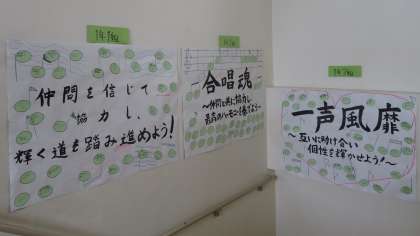 仲間を信じて
協力し、
輝く道を踏み進めよう!
合唱魂
～仲間と共に協力し
最高のハーモニーを奏でよう～
一声風靡
～互いに助け合い
個性を輝かせよう!～